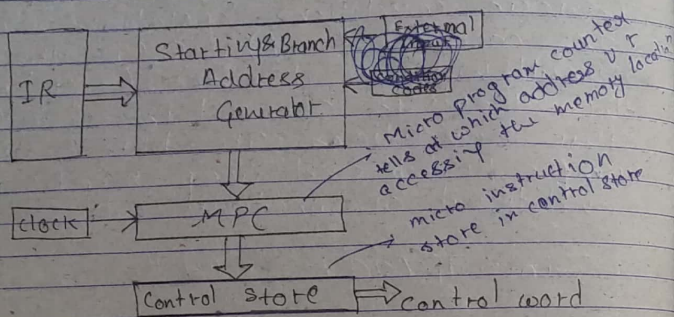 External
Starting & Branch
Address
Generator
IR
Codes
Micro program counter
tells at which address u r
accessing the memory location
Clock
MPC
micro instruction
store in control store
Control store
Control word